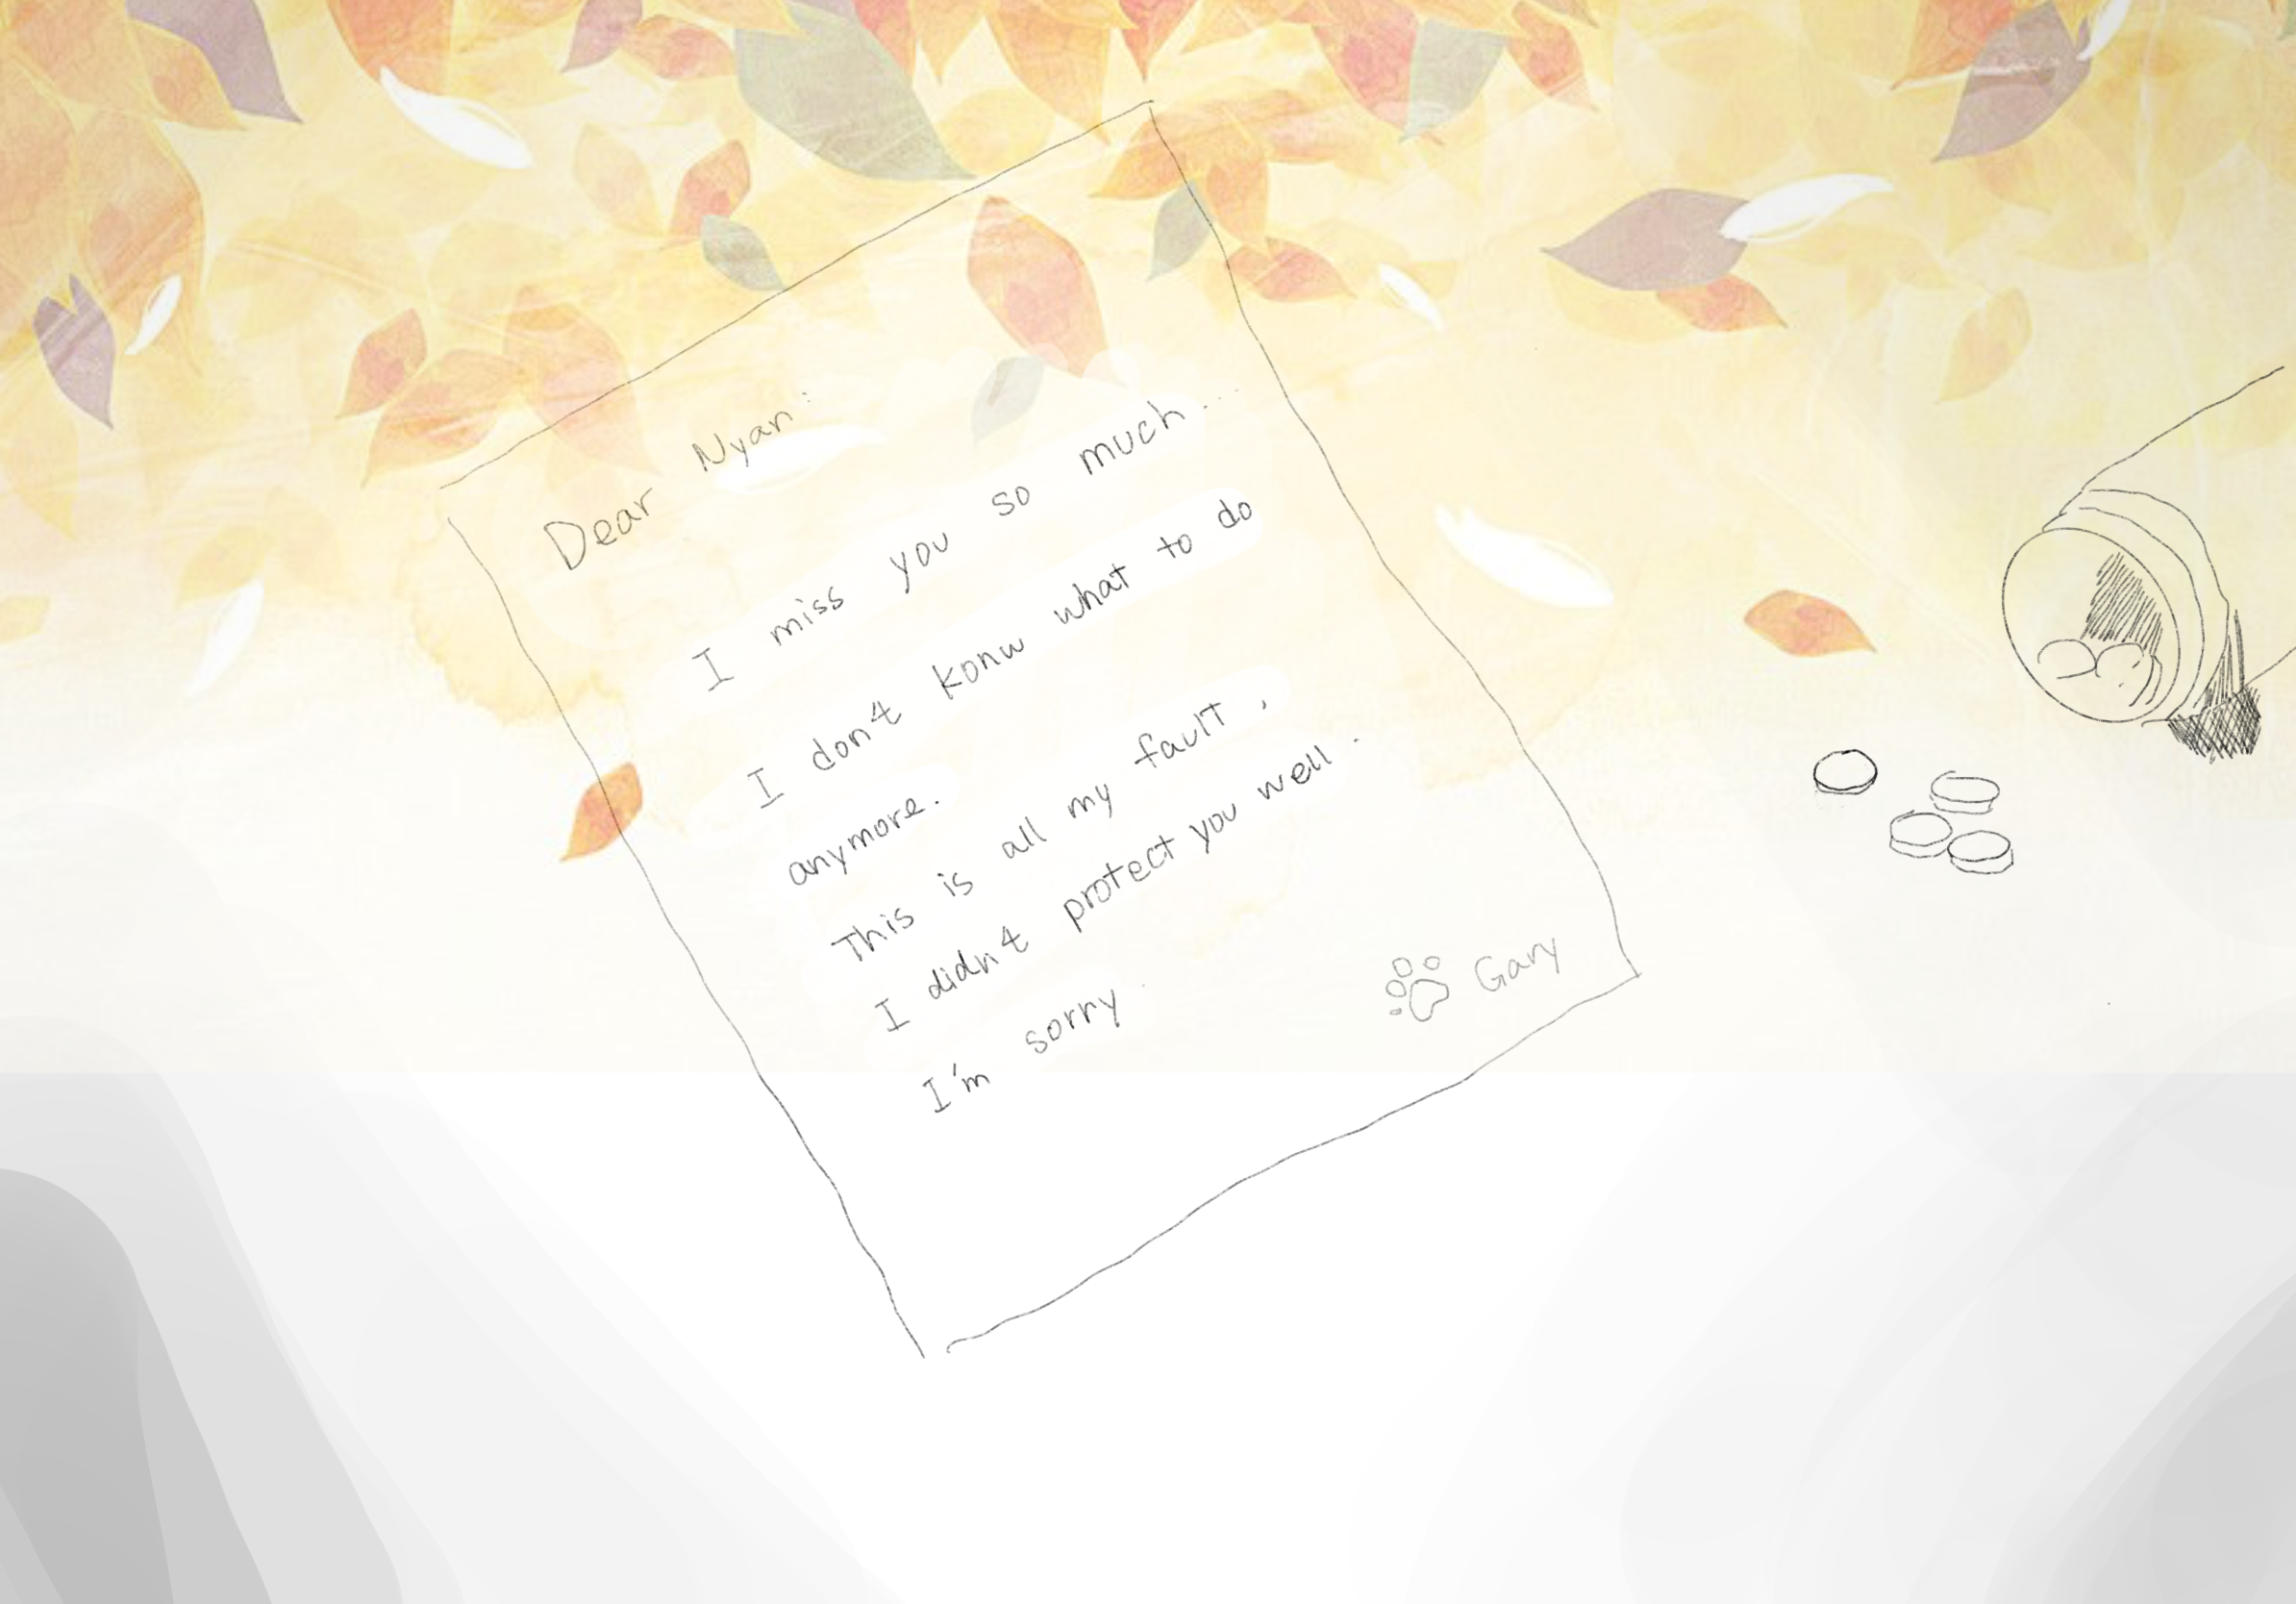 Dear Nyan:
I miss you so much...
I don't konw what to do
anymore.
This is all my fault,
I didn't protect you well.
I'm sorry.
Gary